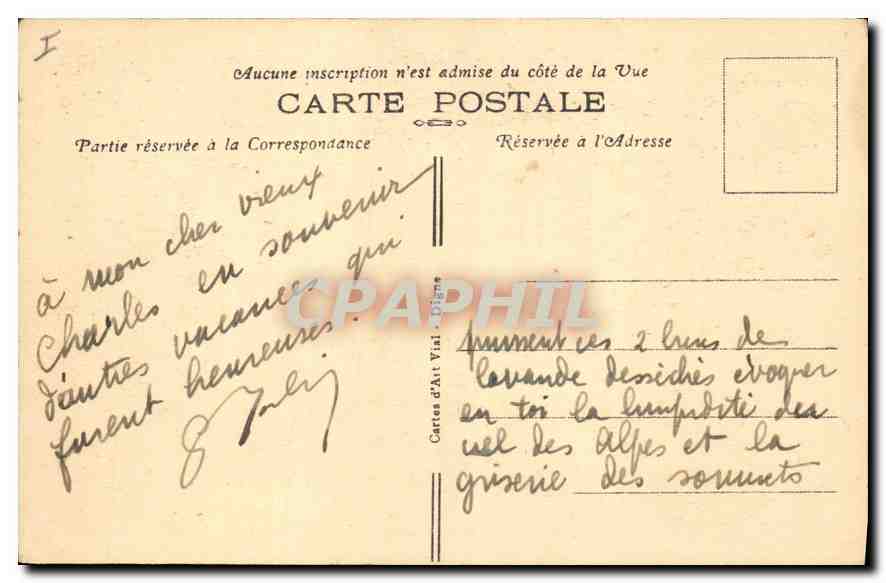 I
Aucune inscription n'est admise du côté de la Vue
CARTE POSTALE
Partie réservée à la Correspondance
Réservée à l'Adresse
à mon cher vieux
Charles en souvenir
d'autres vacances qui
furent heureuses.
Cartes d'Art Vial - Digne
CPAPHIL
puissent ces 2 brins de
lavande desséchés évoquer
en toi la limpidité du
ciel des Alpes et la
griserie des sommets